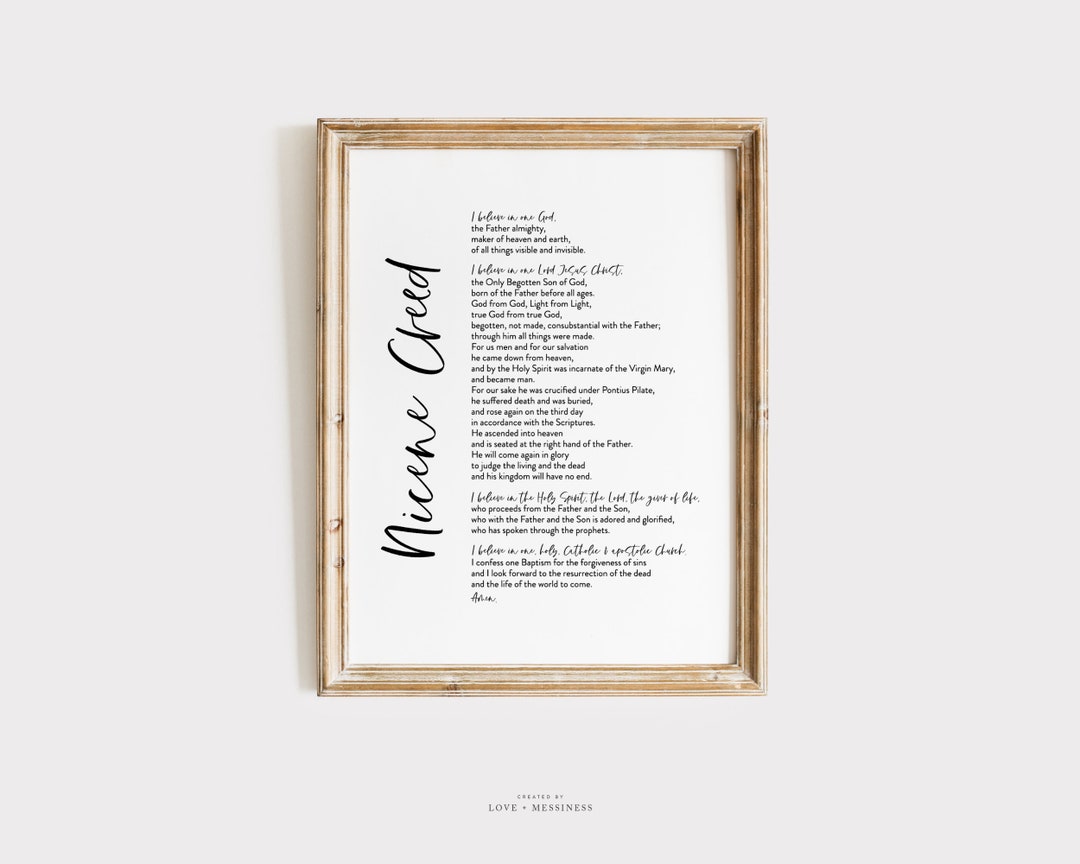 Nicene Creed
I believe in one God,
the Father almighty,
maker of heaven and earth,
of all things visible and invisible.
I believe in one Lord Jesus Christ,
the Only Begotten Son of God,
born of the Father before all ages.
God from God, Light from Light,
true God from true God,
begotten, not made, consubstantial with the Father;
through him all things were made.
For us men and for our salvation
he came down from heaven,
and by the Holy Spirit was incarnate of the Virgin Mary,
and became man.
For our sake he was crucified under Pontius Pilate,
he suffered death and was buried,
and rose again on the third day
in accordance with the Scriptures.
He ascended into heaven
and is seated at the right hand of the Father.
He will come again in glory
to judge the living and the dead
and his kingdom will have no end.
I believe in the Holy Spirit, the Lord, the giver of life,
who proceeds from the Father and the Son,
who with the Father and the Son is adored and glorified,
who has spoken through the prophets.
I believe in one, holy, Catholic & apostolic Church.
I confess one Baptism for the forgiveness of sins
and I look forward to the resurrection of the dead
and the life of the world to come.
Amen.
CREATED BY
LOVE + MESSINESS